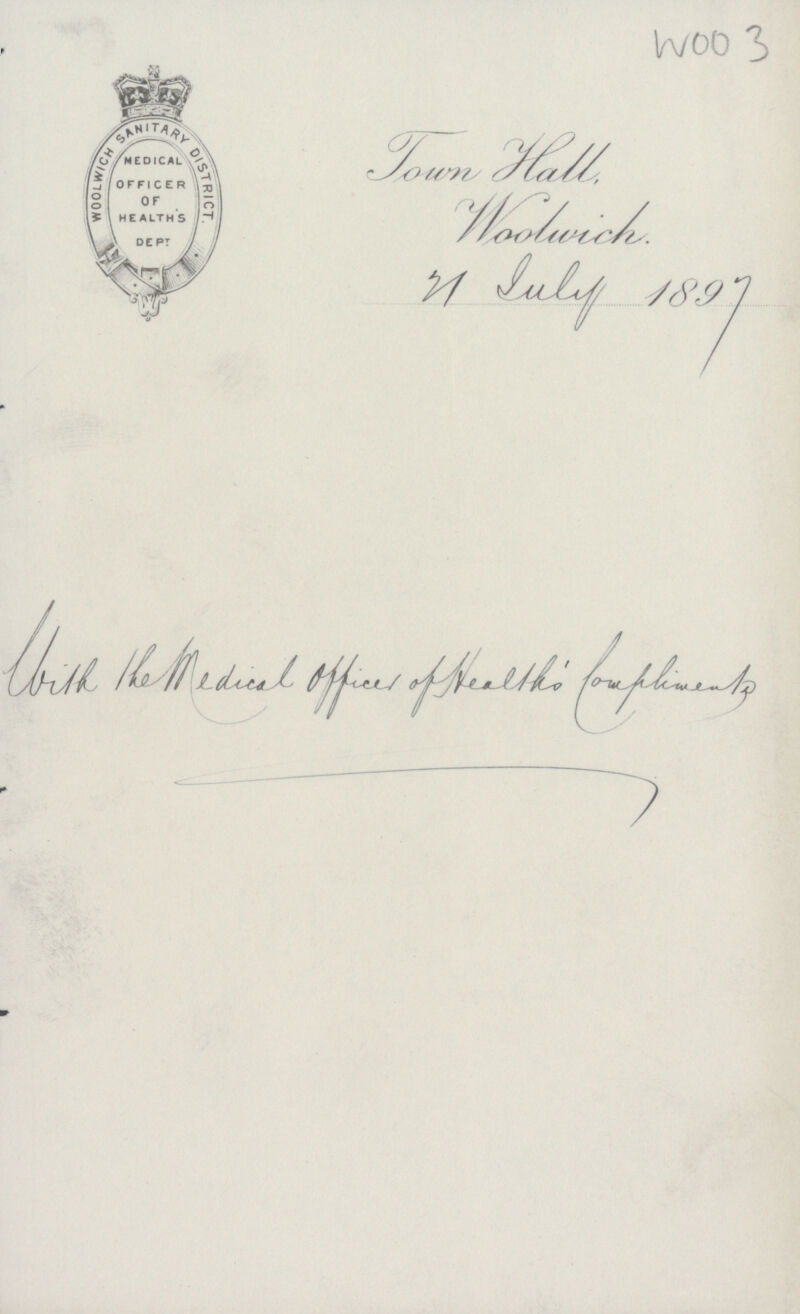 WOO 3
WOOLWICH SANITARY DISTRICT.
MEDICAL
OFFICER
OF
HEALTH'S
DEPT
Town Hall,
Woolwich.
21 July 1897
With the Medical Officer of Health's Compliments